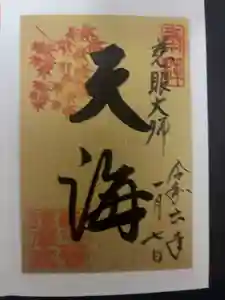 慈眼大師
天海
令和六年
一月七日